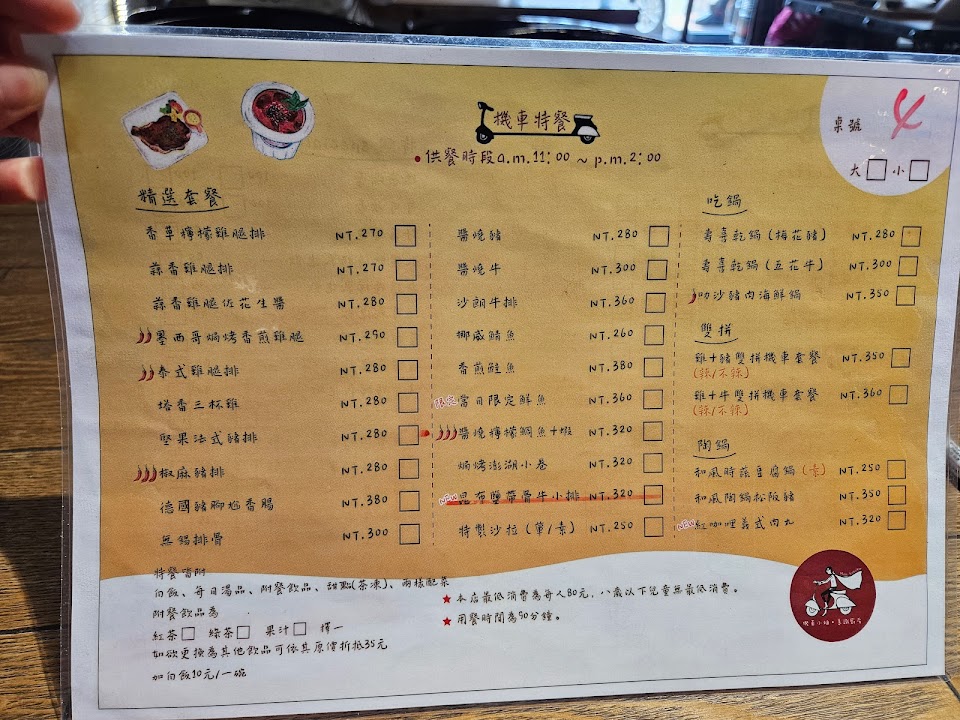 機車特餐
•供餐時段a.m.11:00 ~ p.m.2:00
桌號 4
大□ 小□
精選套餐
香草檸檬雞腿排 NT.270 □
蒜香雞腿排 NT.270 □
蒜香雞腿佐花生醬 NT.280 □
墨西哥焗烤香煎雞腿 NT.290 □
泰式雞腿排 NT.280 □
塔香三杯雞 NT.280 □
堅果法式豬排 NT.280 □
椒麻豬排 NT.280 □
德國豬腳尬香腸 NT.380 □
無錫排骨 NT.300 □
醬燒豬 NT.280 □
醬燒牛 NT.300 □
沙朗牛排 NT.360 □
挪威鯖魚 NT.260 □
香煎鮭魚 NT.380 □
限定 當日限定鮮魚 NT.360 □
醬燒檸檬鯛魚+蝦 NT.320 □
焗烤澎湖小卷 NT.320 □
NEW 昆布鹽帶骨牛小排 NT.320 □
特製沙拉(葷/素) NT.250 □
吃鍋
壽喜乾鍋(梅花豬) NT.280 □
壽喜乾鍋(五花牛) NT.300 □
叻沙豬肉海鮮鍋 NT.350 □
雙拼
雞+豬雙拼機車套餐 NT.350 □
(辣/不辣)
雞+牛雙拼機車套餐 NT.360 □
(辣/不辣)
陶鍋
和風時蔬豆腐鍋(素) NT.250 □
和風陶鍋松阪豬 NT.350 □
NEW 紅咖哩義式肉丸 NT.320 □
特餐皆附
白飯、每日湯品、附餐飲品、甜點(茶凍)、兩樣配菜
附餐飲品為
紅茶□ 綠茶□ 果汁□ 擇一
如欲更換為其他飲品可依其原價折抵35元
加白飯10元/一碗
★ 本店最低消費為每人80元,八歲以下兒童無最低消費。
★ 用餐時間為90分鐘。